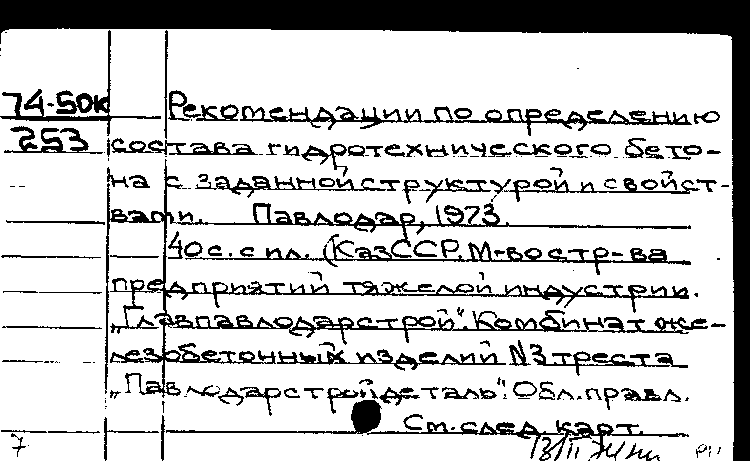 74-50к Рекомендации по определению
253 состава гидротехнического бето-
на с заданной структурой и свойст-
вами. Павлодар, 1973.
40 с. с ил. (КазССР. М-во стр-ва
предприятий тяжелой индустрии.
„Главпавлодарстрой". Комбинат же-
лезобетонных изделий N3 треста
„Павлодарстройдеталь". Обл. правл.
См. след. карт.
7